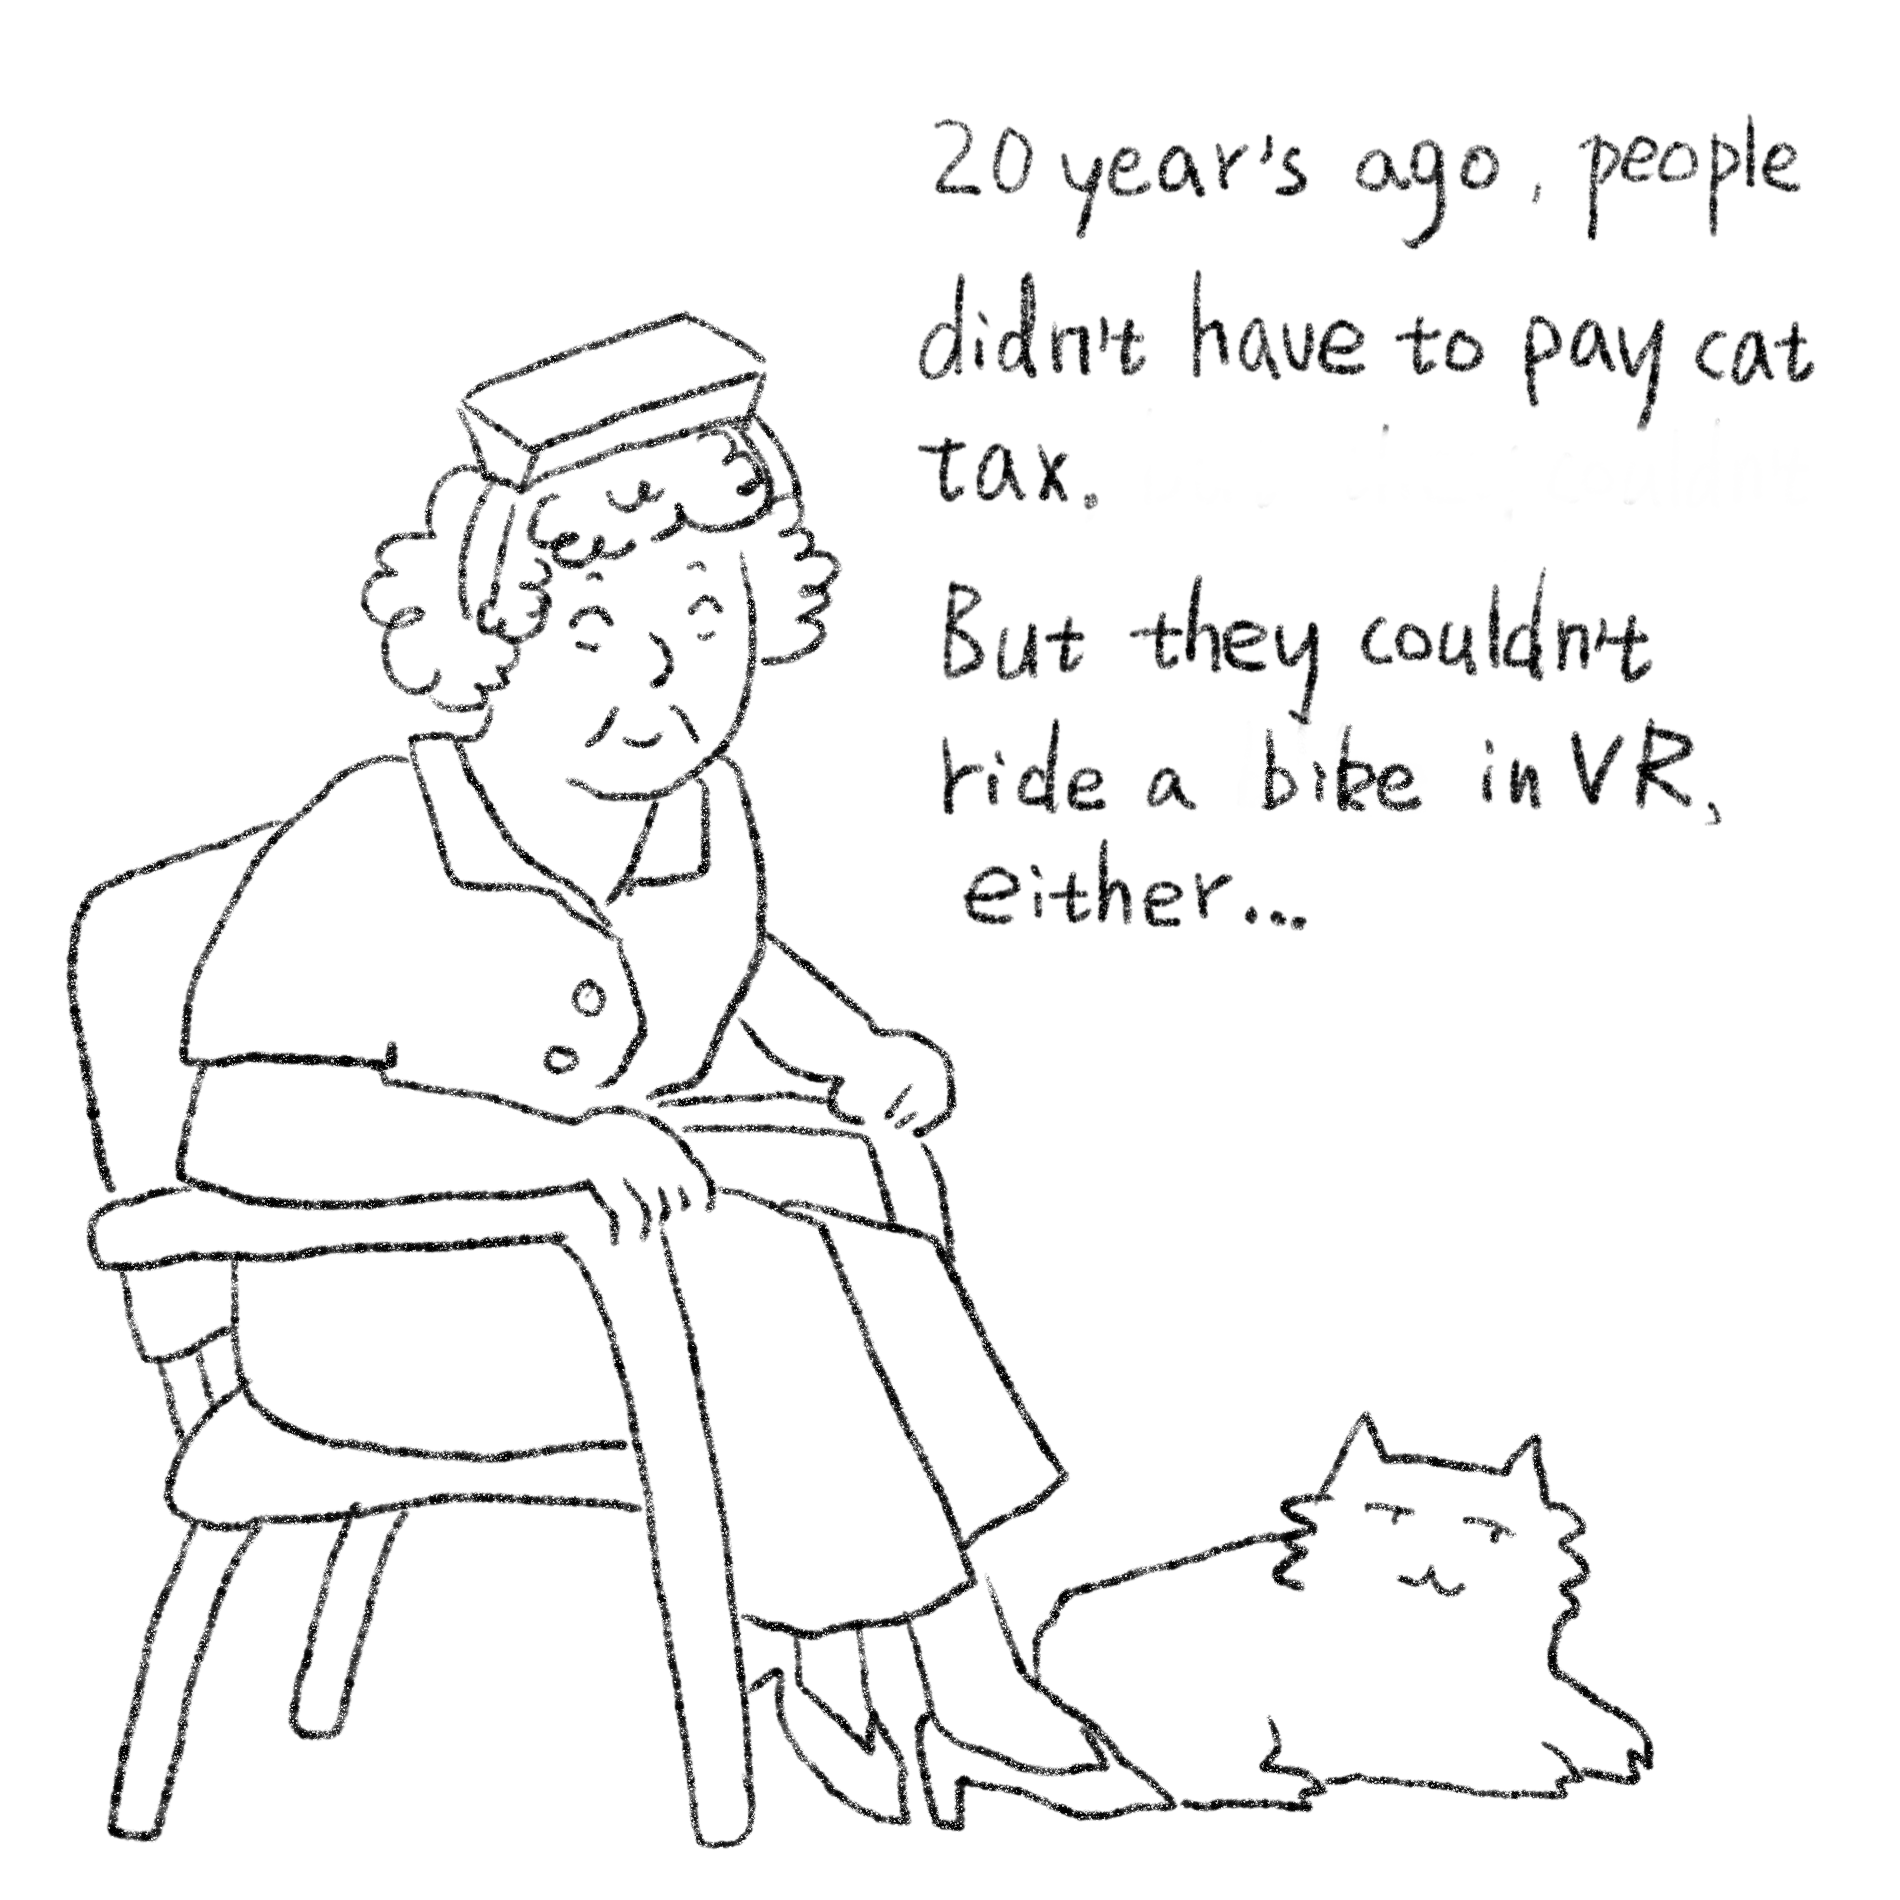 20 year's ago, people
didn't have to pay cat
tax.
But they couldn't
ride a bike in VR,
either...